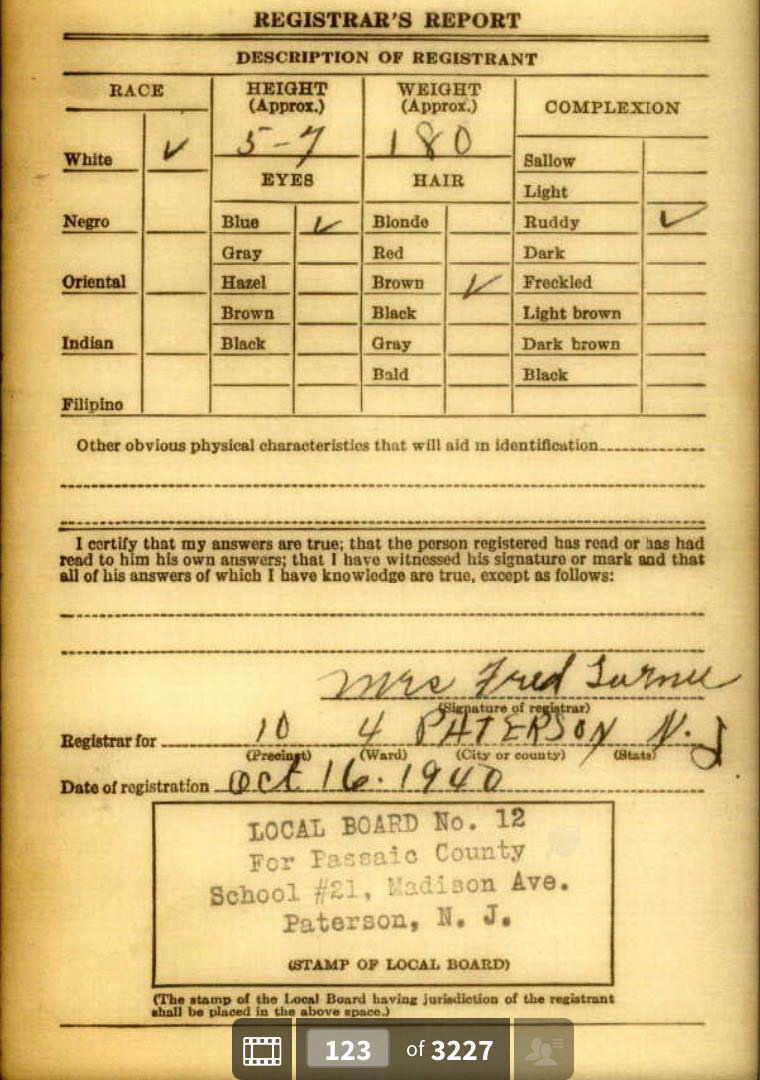 REGISTRAR'S REPORT
DESCRIPTION OF REGISTRANT
RACE HEIGHT (Approx.) WEIGHT (Approx.) COMPLEXION
White ✓ 5-7 180 Sallow
EYES HAIR Light
Negro Blue ✓ Blonde Ruddy ✓
Gray Red Dark
Oriental Hazel Brown ✓ Freckled
Brown Black Light brown
Indian Black Gray Dark brown
Bald Black
Filipino
Other obvious physical characteristics that will aid in identification
I certify that my answers are true; that the person registered has read or has had
read to him his own answers; that I have witnessed his signature or mark and that
all of his answers of which I have knowledge are true, except as follows:
Mrs Fred
(Signature of registrar)
Registrar for 10 4 PATERSON N.J
(Precinct) (Ward) (City or county) (State)
Date of registration Oct 16. 1940
LOCAL BOARD No. 12
For Passaic County
School #21, Madison Ave.
Paterson, N. J.
(STAMP OF LOCAL BOARD)
(The stamp of the Local Board having jurisdiction of the registrant
shall be placed in the above space.)
123 of 3227